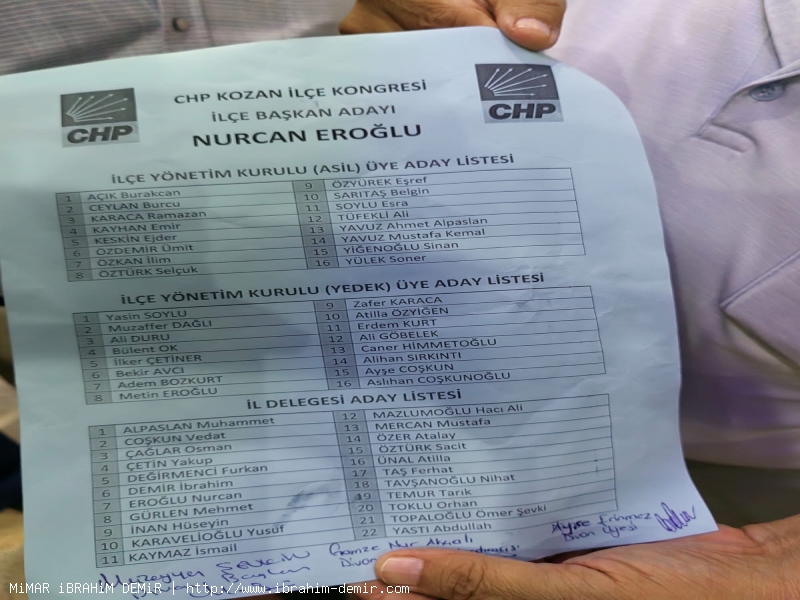 CHP
CHP KOZAN İLÇE KONGRESİ
CHP
İLÇE BAŞKAN ADAYI
NURCAN EROĞLU
İLÇE YÖNETİM KURULU (ASİL) ÜYE ADAY LİSTESİ
1 AÇIK Burakcan
2 CEYLAN Burcu
3 KARACA Ramazan
4 KAYHAN Emir
5 KESKİN Ejder
6 ÖZDEMİR Ümit
7 ÖZKAN İlim
8 ÖZTÜRK Selçuk
9 ÖZYÜREK Eşref
10 SARITAŞ Belgin
11 SOYLU Esra
12 TÜFEKLİ Ali
13 YAVUZ Ahmet Alpaslan
14 YAVUZ Mustafa Kemal
15 YİĞENOĞLU Sinan
16 YÜLEK Soner
İLÇE YÖNETİM KURULU (YEDEK) ÜYE ADAY LİSTESİ
1 Yasin SOYLU
2 Muzaffer DAĞLI
3 Ali DURU
4 Bülent OK
5 İlker ÇETİNER
6 Bekir AVCI
7 Adem BOZKURT
8 Metin EROĞLU
9 Zafer KARACA
10 Atilla ÖZYİĞEN
11 Erdem KURT
12 Ali GÖBELEK
13 Caner HİMMETOĞLU
14 Alihan SIRKINTI
15 Ayşe COŞKUN
16 Aslıhan COŞKUNOĞLU
İL DELEGESİ ADAY LİSTESİ
1 ALPASLAN Muhammet
2 COŞKUN Vedat
3 ÇAĞLAR Osman
4 ÇETİN Yakup
5 DEĞİRMENCİ Furkan
6 DEMİR İbrahim
7 EROĞLU Nurcan
8 GÜRLEN Mehmet
9 İNAN Hüseyin
10 KARAVELİOĞLU Yusuf
11 KAYMAZ İsmail
12 MAZLUMOĞLU Hacı Ali
13 MERCAN Mustafa
14 ÖZER Atalay
15 ÖZTÜRK Sacit
16 ÜNAL Atilla
17 TAŞ Ferhat
18 TAVŞANOĞLU Nihat
19 TEMUR Tarık
20 TOKLU Orhan
21 TOPALOĞLU Ömer Şevki
22 YASTI Abdullah
Ayşe
Divan Üyesi
Gamze Nur
Divan
MiMAR iBRAHiM DEMiR | http://www.ibrahim-demir.com